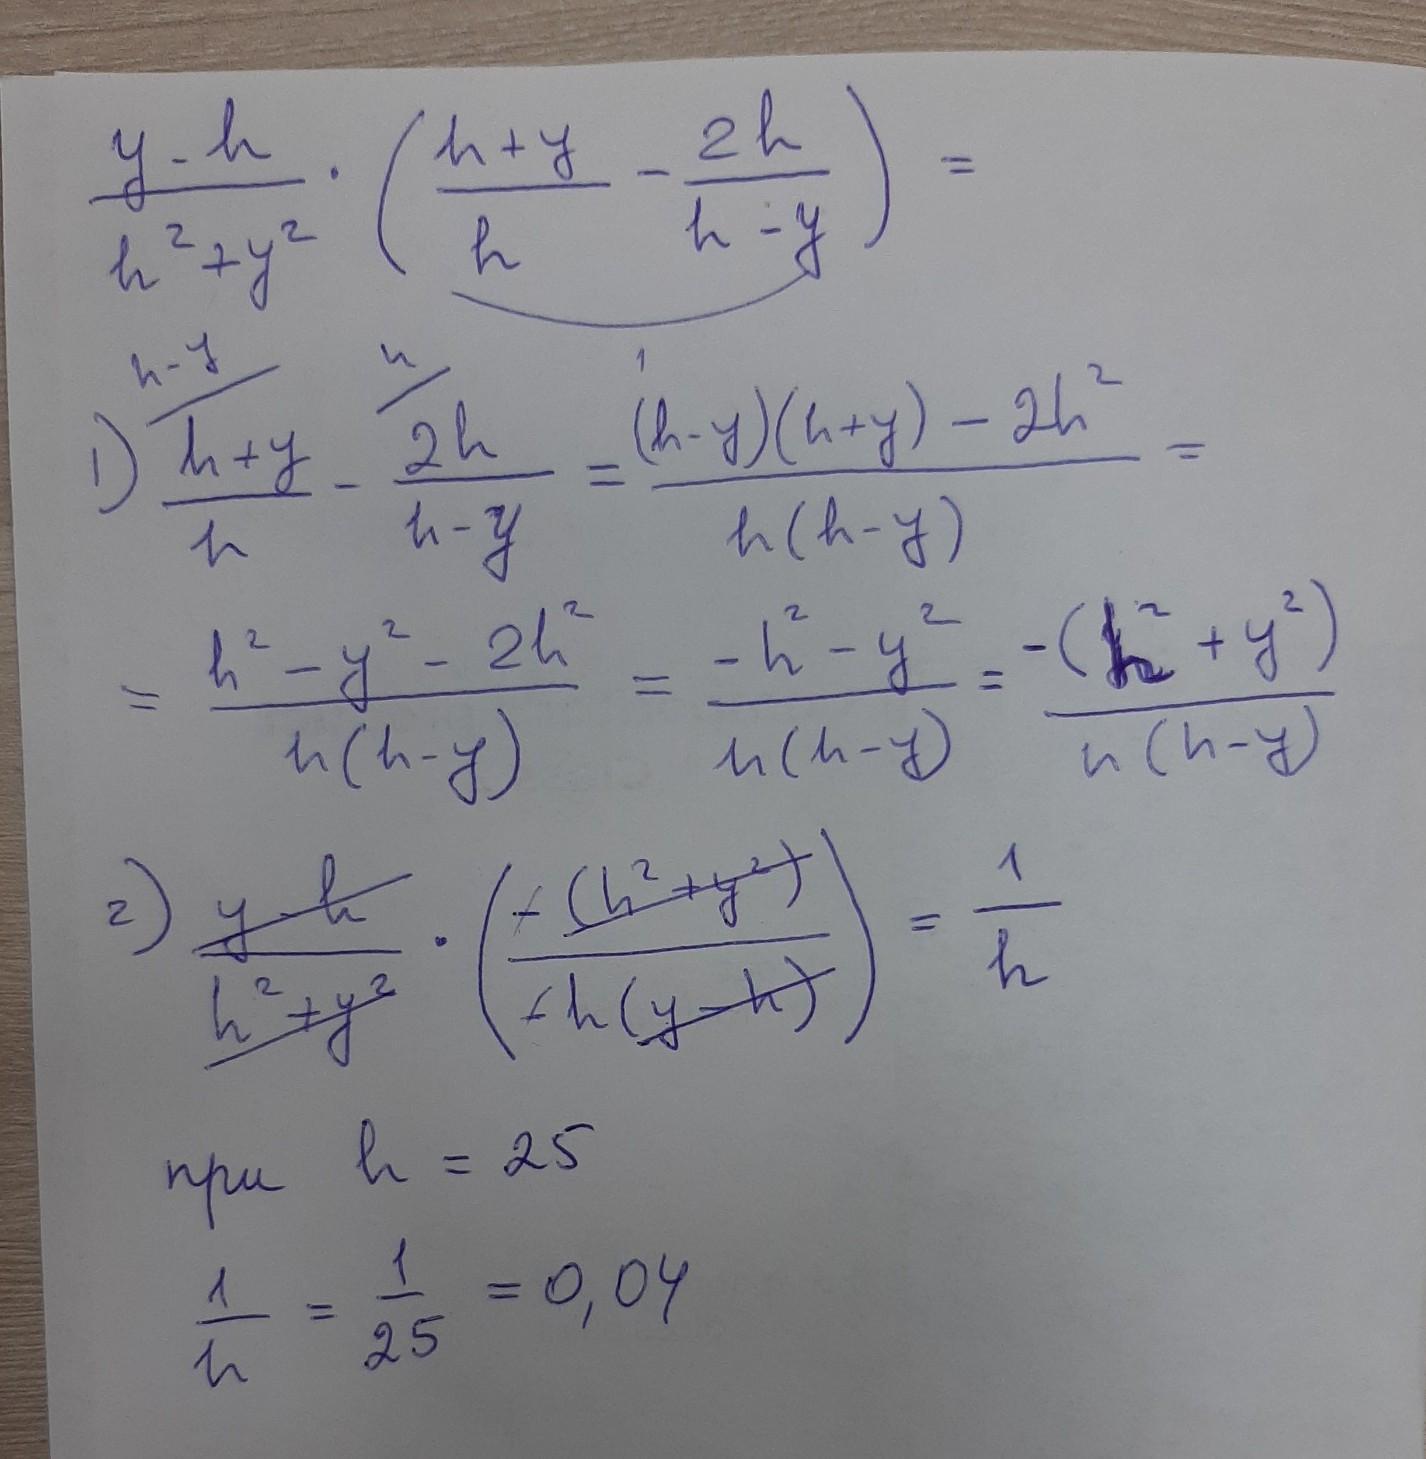 (y - h)/(h² + y²) · ((h + y)/h - 2h/(h - y)) =
h-y/ h/
1) (h + y)/h - 2h/(h - y) = ((h - y)(h + y) - 2h²)/(h(h - y)) =
= (h² - y² - 2h²)/(h(h - y)) = (-h² - y²)/(h(h - y)) = -(h² + y²)/(h(h - y))
2) (y - h)/(h² + y²) · (-(h² + y²)/(-h(y - h))) = 1/h
при h = 25
1/h = 1/25 = 0,04